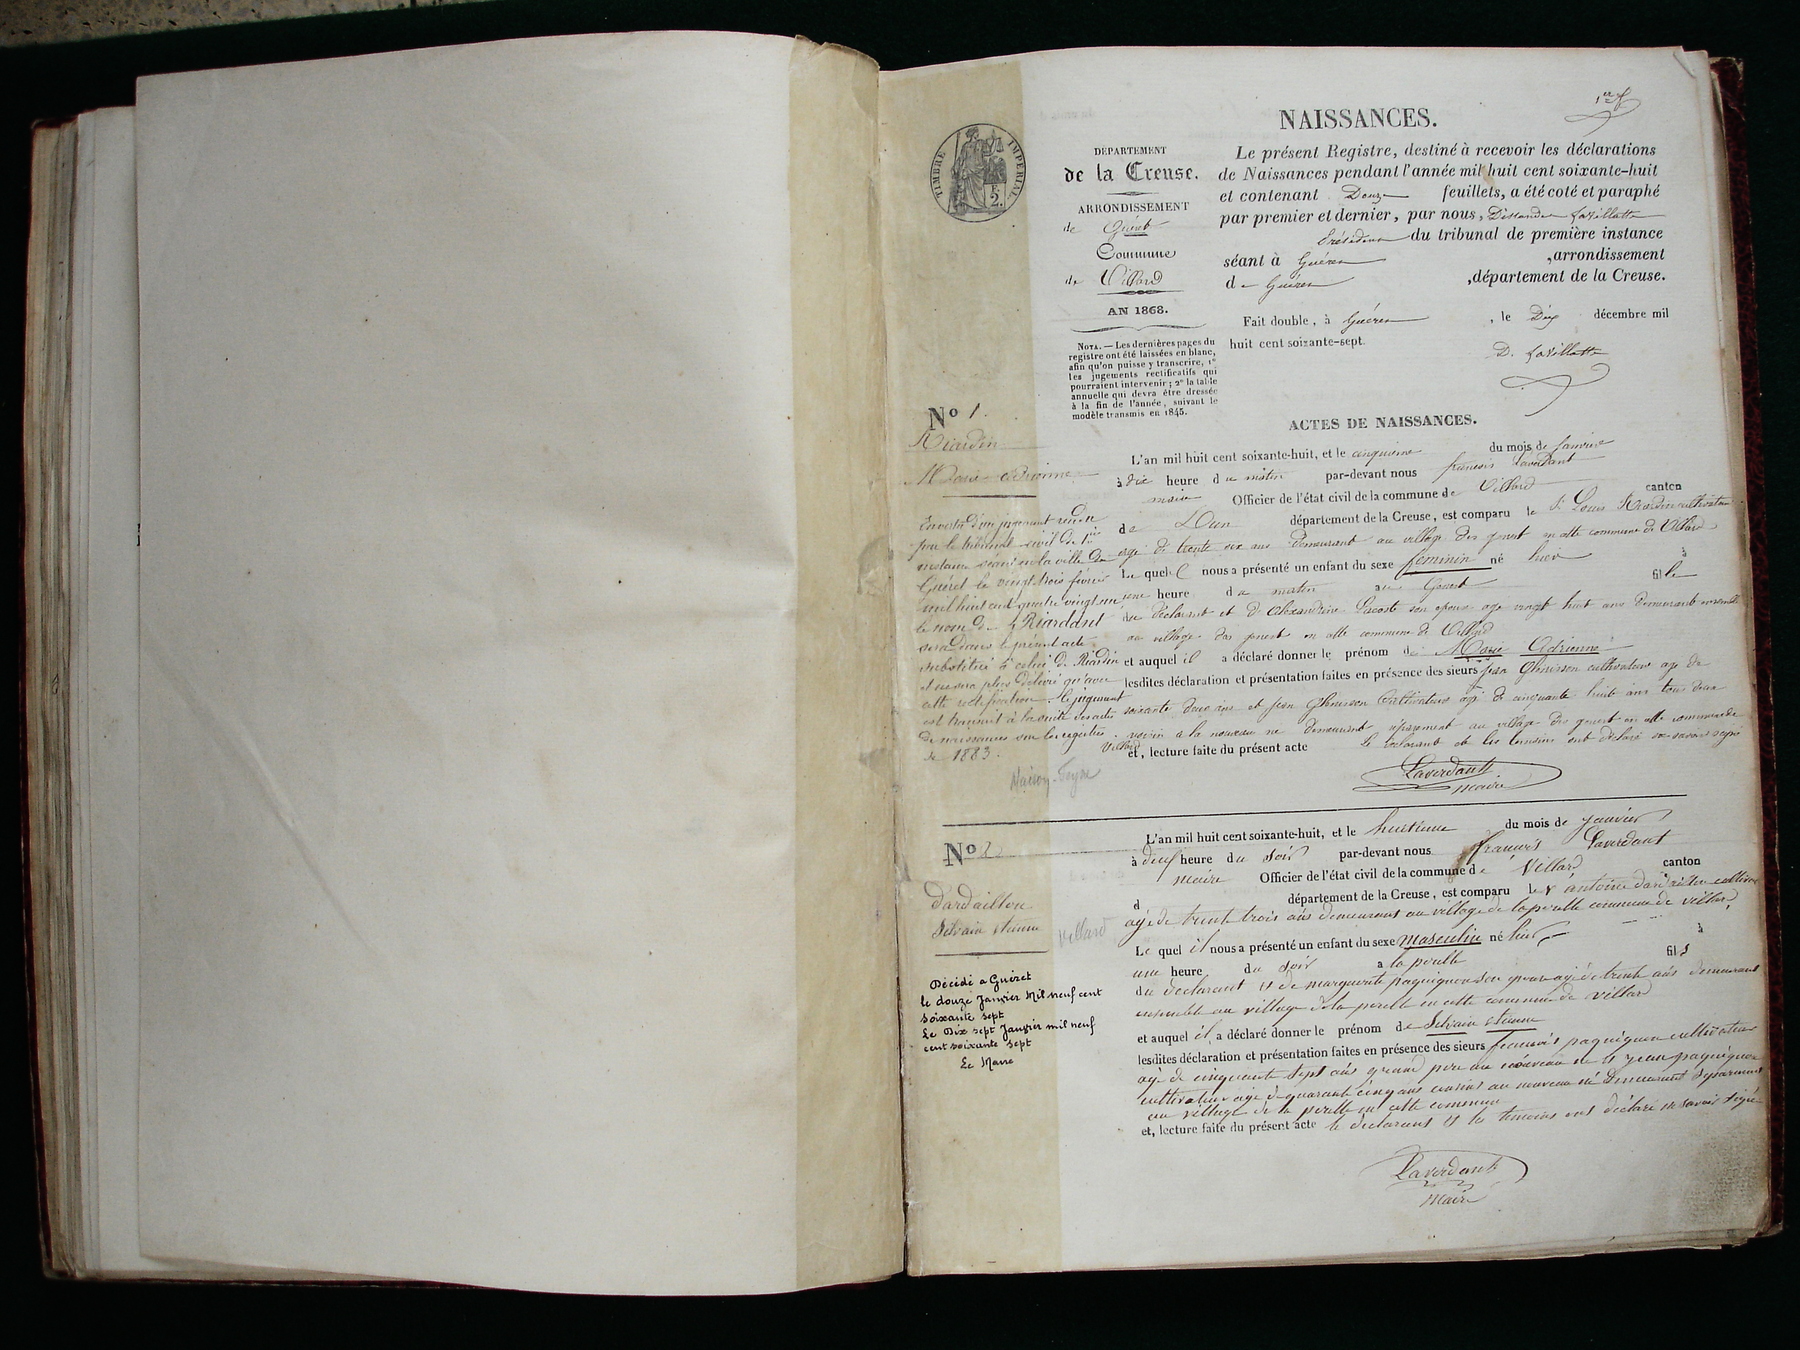 1er f
NAISSANCES.
TIMBRE IMPERIAL
F.
2.
DÉPARTEMENT
de la Creuse.
ARRONDISSEMENT
de Guéret
Commune
de Villard
AN 1868.
NOTA. — Les dernières pages du
registre ont été laissées en blanc,
afin qu'on puisse y transcrire, 1º
les jugements rectificatifs qui
pourraient intervenir ; 2º la table
annuelle qui devra être dressée
à la fin de l'année, suivant le
modèle transmis en 1845.
Le présent Registre, destiné à recevoir les déclarations
de Naissances pendant l'année mil huit cent soixante-huit
et contenant Douze feuillets, a été coté et paraphé
par premier et dernier, par nous, Lavillatte
Président du tribunal de première instance
séant à Guéret , arrondissement
de Guéret , département de la Creuse.
Fait double, à Guéret , le Dix décembre mil
huit cent soixante-sept.
D. Lavillatte
ACTES DE NAISSANCES.
Nº 1.
Riardin
Marie Adrienne
En vertu d'un jugement rendu
par le tribunal civil de 1ère
instance séant en la ville de
Guéret le vingt trois février
mil huit cent quatre vingt un
le nom de Riardant
sera dans le présent acte
substitué à celui de Riardin
et ne sera plus délivré qu'avec
cette rectification. Le jugement
est transcrit à la suite des actes
de naissances sur les registres
de 1883.
Maison-Feyne
L'an mil huit cent soixante-huit, et le cinquième du mois de janvier
à dix heure du matin par-devant nous françois Laverdant
maire Officier de l'état civil de la commune de Villard canton
de Dun département de la Creuse, est comparu le Sr Louis Riardin cultivateur
agé de trente six ans demeurant au village des en cette commune de Villard
Le quel nous a présenté un enfant du sexe féminin né hier à
une heure du matin au fille
du déclarant et d'Alexandrine Lacoste son épouse agé vingt huit ans demeurant ensemble
au village des en cette commune de Villard
et auquel il a déclaré donner le prénom de Marie Adrienne
lesdites déclaration et présentation faites en présence des sieurs jean cultivateur agé de
soixante deux ans et jean cultivateur agé de cinquante huit ans tous deux
voisin a la nouveau né demeurant séparement au village des en cette commune de
Villard
et, lecture faite du présent acte le déclarant et les témoins ont déclaré ne savoir signé
Laverdant
maire
Nº 2
Dardaillon
Silvain étienne
Villard
Décédé a Guéret
le douze Janvier Mil neuf cent
soixante sept
Le Dix sept Janvier mil neuf
cent soixante sept
Le Maire
L'an mil huit cent soixante-huit, et le huitieme du mois de janvier
à deuf heure du soir par-devant nous françois Laverdant
maire Officier de l'état civil de la commune de Villard canton
d département de la Creuse, est comparu le Sr antoine dardaillon cultivateur
agé de trente trois ans demeurant au village de la perelle commune de villard
Le quel il nous a présenté un enfant du sexe masculin né hier à
une heure du soir a la perelle fils
du declarant et de marguerite paquignon son épouse agé de trente ans demeurant
ensemble au village de la perelle en cette commune de villard
et auquel il a déclaré donner le prénom de Silvain étienne
lesdites déclaration et présentation faites en présence des sieurs francois paquignon cultivateur
agé de cinquante sept ans grand pere au nouveau né et jean paquignon
cultivateur agé de quarante cinq ans cousins au nouveau né demeurant séparement
au village de la perelle en cette commune
et, lecture faite du présent acte le declarant et les temoins ont déclaré ne savoir signé
Laverdant
maire